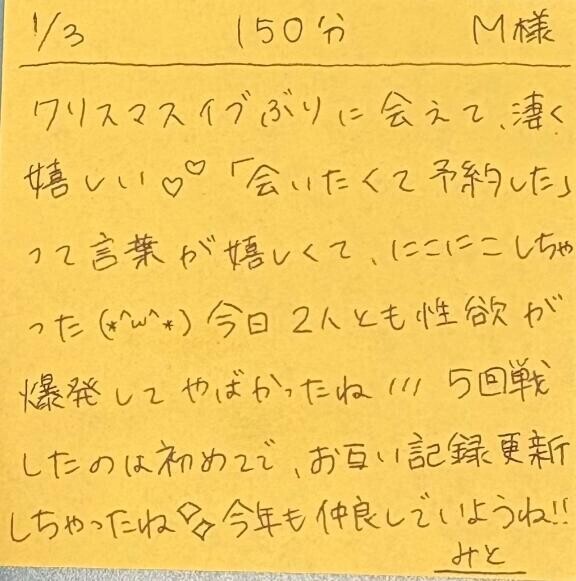 1/3 150分 M様
クリスマスイブぶりに会えて、凄く
嬉しい♡♡「会いたくて予約した」
って言葉が嬉しくて、にこにこしちゃ
った(*^ω^*)今日2人とも性欲が
爆発してやばかったね/// 5回戦
したのは初めてで、お互い記録更新
しちゃったね✧✧今年も仲良しでいようね!!
みと